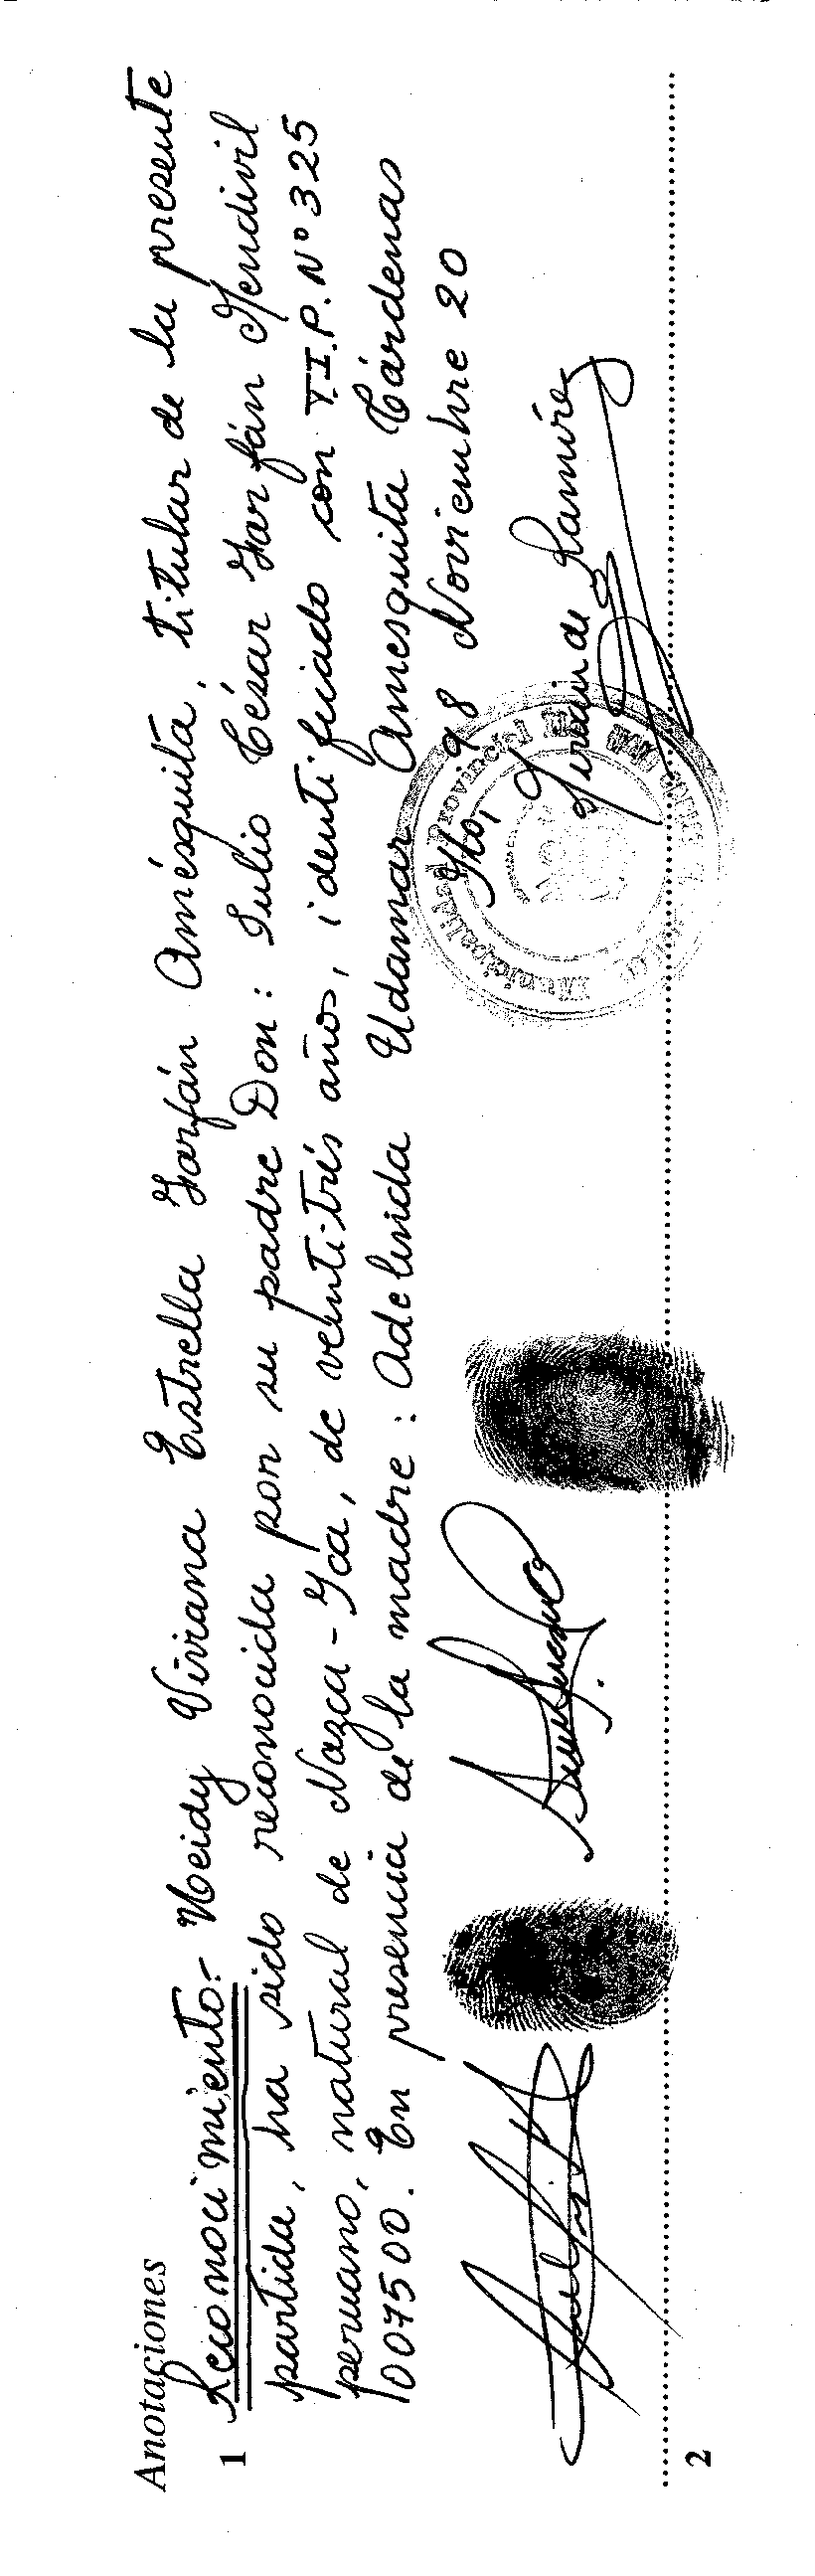 Anotaciones
1 Reconocimiento.- Heidy Viviana Estrella Farfán Amésquita, titular de la presente
partida, ha sido reconocida por su padre Don: Julio César Farfán Mendivil
peruano, natural de Nazca-Ica, de veintitrés años, identificado con T.I.P. Nº 325
1007500. En presencia de la madre: Adelinda Udamar Amesquita Cárdenas
Ilo, 98 Noviembre 20
Municipalidad Provincial
de Ramírez
2